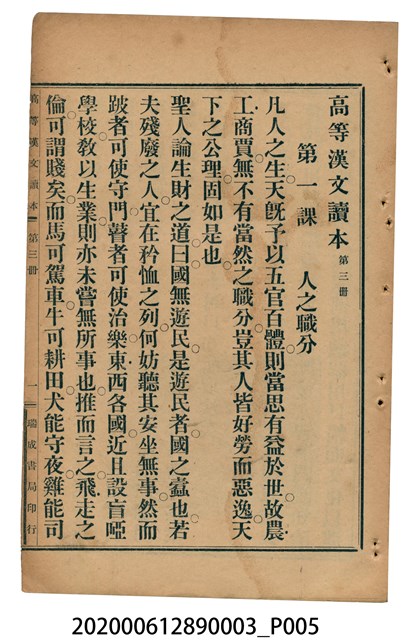 高等漢文讀本 第三冊
第一課 人之職分
凡人之生天旣予以五官百體則當思有益於世故農
工商賈無不有當然之職分豈其人皆好勞而惡逸天
下之公理固如是也
聖人論生財之道曰國無遊民是遊民者國之蠹也若
夫殘廢之人宜在矜恤之列何妨聽其安坐無事然而
跛者可使守門瞽者可使治樂東西各國近且設盲啞
學校敎以生業則亦未嘗無所事也推而言之飛走之
倫可謂賤矣而馬可駕車牛可耕田犬能守夜雞能司
高等漢文讀本 第三冊 一 瑞成書局印行
202000612890003_P005